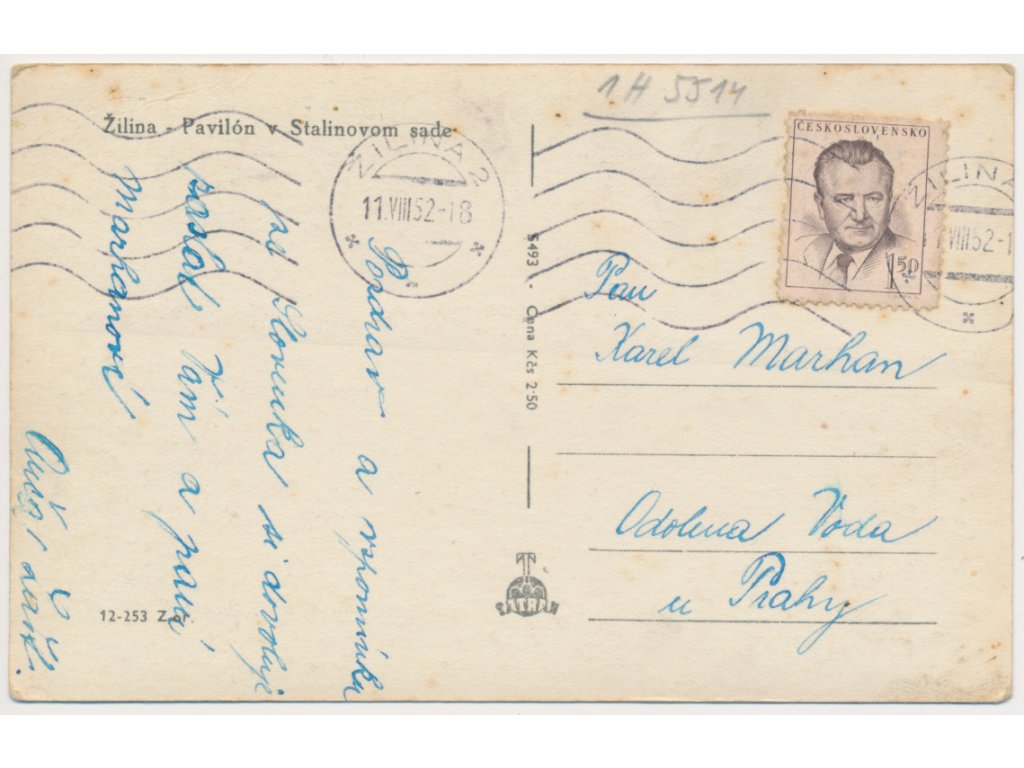 1 H 5514
Žilina - Pavilón v Stalinovom sade
ŽILINA 2
11.VIII 52-18
ČESKOSLOVENSKO
1 50
ŽILINA
11.VIII 52-1
Pozdrav a vzpomínku
ze Slovenska si dovoluje
zaslat Vám a paní
Marhanové
S493 . Cena Kčs 2·50
Pan
Karel Marhan
Odolena Voda
u Prahy
TATRAN
12-253 Z.pr.